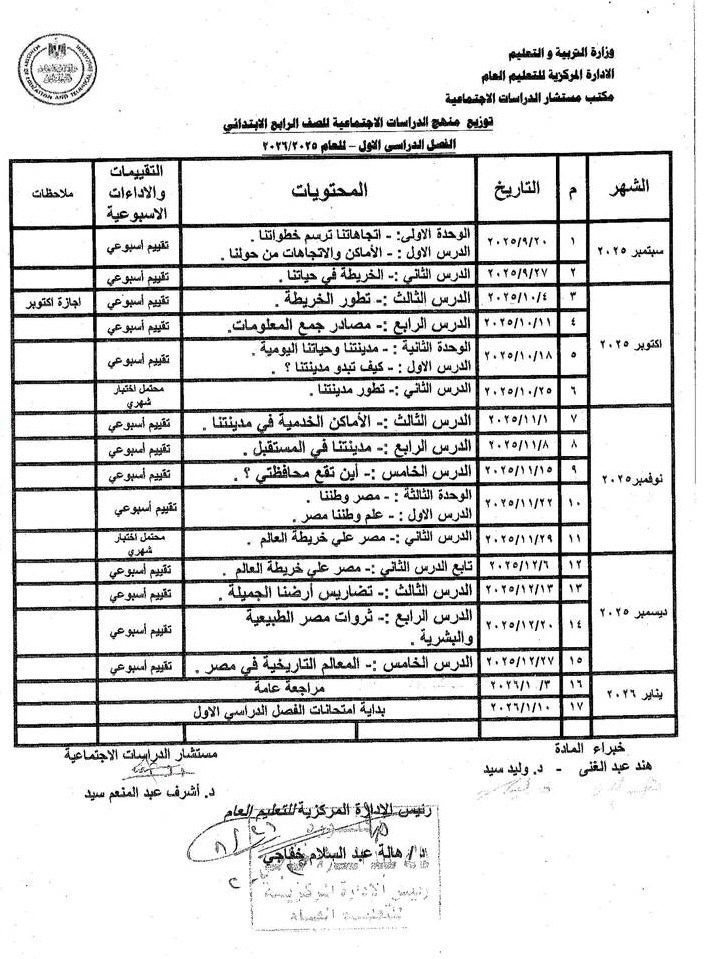 وزارة التربية و التعليم
الادارة المركزية للتعليم العام
مكتب مستشار الدراسات الاجتماعية
توزيع منهج الدراسات الاجتماعية للصف الرابع الابتدائي
الفصل الدراسي الاول - للعام ٢٠٢٦/٢٠٢٥
الشهر م التاريخ المحتويات التقييمات والاداءات الاسبوعية ملاحظات
سبتمبر ٢٠٢٥
١ ٢٠٢٥/٩/٢٠ الوحدة الاولى: - اتجاهاتنا ترسم خطواتنا . تقييم أسبوعي
الدرس الاول : - الأماكن والاتجاهات من حولنا .
٢ ٢٠٢٥/٩/٢٧ الدرس الثاني :- الخريطة في حياتنا . تقييم أسبوعي
اكتوبر ٢٠٢٥
٣ ٢٠٢٥/١٠/٤ الدرس الثالث :- تطور الخريطة . تقييم أسبوعي اجازة اكتوبر
٤ ٢٠٢٥/١٠/١١ الدرس الرابع :- مصادر جمع المعلومات. تقييم أسبوعي
٥ ٢٠٢٥/١٠/١٨ الوحدة الثانية :- مدينتنا وحياتنا اليومية . تقييم أسبوعي
الدرس الاول : - كيف تبدو مدينتنا ؟ .
٦ ٢٠٢٥/١٠/٢٥ الدرس الثاني :- تطور مدينتنا . محتمل اختبار شهري
نوفمبر ٢٠٢٥
٧ ٢٠٢٥/١١/١ الدرس الثالث :- الأماكن الخدمية في مدينتنا . تقييم أسبوعي
٨ ٢٠٢٥/١١/٨ الدرس الرابع :- مدينتنا في المستقبل . تقييم أسبوعي
٩ ٢٠٢٥/١١/١٥ الدرس الخامس :- أين تقع محافظتي ؟ . تقييم أسبوعي
١٠ ٢٠٢٥/١١/٢٢ الوحدة الثالثة :- مصر وطننا . تقييم أسبوعي
الدرس الاول : - علم وطننا مصر .
١١ ٢٠٢٥/١١/٢٩ الدرس الثاني :- مصر علي خريطة العالم . محتمل اختبار شهري
ديسمبر ٢٠٢٥
١٢ ٢٠٢٥/١٢/٦ تابع الدرس الثاني :- مصر علي خريطة العالم . تقييم أسبوعي
١٣ ٢٠٢٥/١٢/١٣ الدرس الثالث :- تضاريس أرضنا الجميلة . تقييم أسبوعي
١٤ ٢٠٢٥/١٢/٢٠ الدرس الرابع :- ثروات مصر الطبيعية تقييم أسبوعي
والبشرية .
١٥ ٢٠٢٥/١٢/٢٧ الدرس الخامس :- المعالم التاريخية في مصر . تقييم أسبوعي
يناير ٢٠٢٦
١٦ ٢٠٢٦/١/٣ مراجعة عامة
١٧ ٢٠٢٦/١/١٠ بداية امتحانات الفصل الدراسي الاول
خبراء المادة
هند عبد الغنى - د. وليد سيد
مستشار الدراسات الاجتماعية
د. أشرف عبد المنعم سيد
رئيس الادارة المركزية للتعليم العام
د/ هالة عبد السلام خفاجي
رئيس الادارة المركزيـة